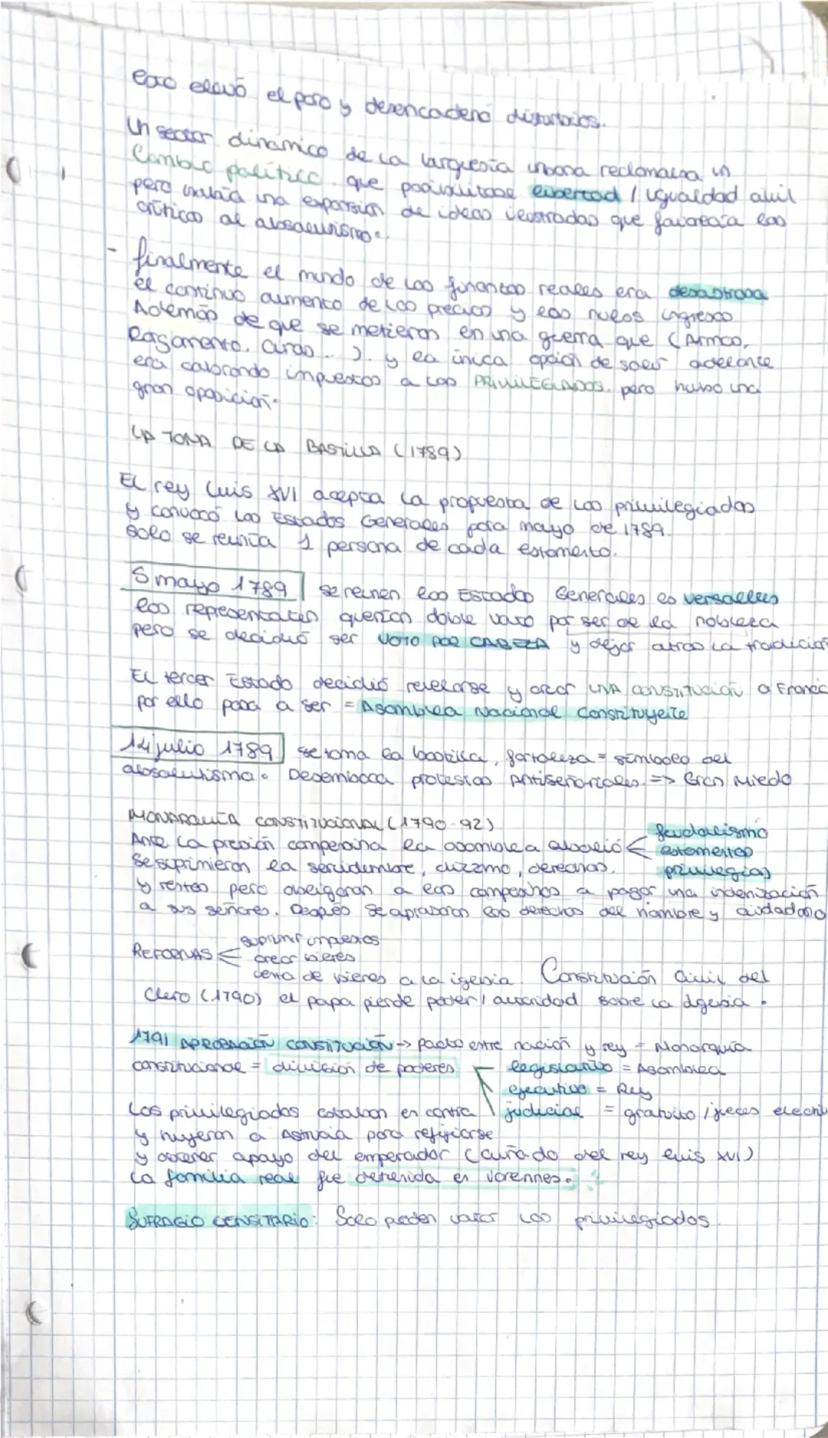 esto elevó el paro y desencadenó disturbios.
Un sector dinámico de la burguesía urbana reclamaba un
Cambio político que posibilitase libertad / igualdad civil
pero había una expansión de ideas ilustradas que favorecía las
críticas al absolutismo.
- finalmente el mundo de las finanzas reales era desastrosa
el continuo aumento de los precios y los nulos ingresos
Además de que se metieron en una guerra que (Armas,
Ragamento, ...). y la única opción de salir adelante
era cobrando impuestos a los PRIVILEGIADOS. pero hubo una
gran oposición.
LA TOMA DE LA BASTILLA (1789)
El rey Luis XVI acepta la propuesta de los privilegiados
y convocó los Estados Generales para mayo de 1789.
Solo se reunía 1 persona de cada estamento.
5 mayo 1789 se reunen los Estados Generales es versalles
los representates querían doble voto por ser de la nobleza
pero se decidió ser VOTO POR CABEZA y dejar atrás la tradición
El tercer Estado decidió revelarse y crear UNA CONSTITUCIÓN a Franc
por ello pasa a ser = Asamblea Nacional Constituyente
14 julio 1789 se toma la bastilla, fortaleza = símbolo del
absolutismo. Desemboca protestas Antiseñoriales => Gran Miedo
MONARQUÍA CONSTITUCIONAL (1790-92)
Ante la presión campesina la asamblea abolió < feudalismo
estamentos
privilegios
Se suprimieron la servidumbre, diezmo, derechos.
y rentas pero obligaron a los campesinos a pagar una indenización
a sus señores. Después se aprobaron los derechos del hombre y ciudadano
REFORMAS < suprimir impuestos
crear bienes
venta de bienes a la iglesia. Constitución Civil del
Clero (1790) el papa pierde poder / autoridad sobre la iglesia.
1791 APROBACIÓN CONSTITUCIÓN → pacto entre nación y rey = Monarquía
constitucional = división de poderes
legislativo = Asamblea
ejecutivo = Rey
judicial = gratuito / jueces electi
Los privilegiados estaban en contra
y huyeron a Astruia para refugiarse
y obtener apoyo del emperador (cuñado del rey luis XVI)
La familia real fue detenida en Varennes.
SUFRAGIO CENSITARIO: Solo pueden votar los privilegiados